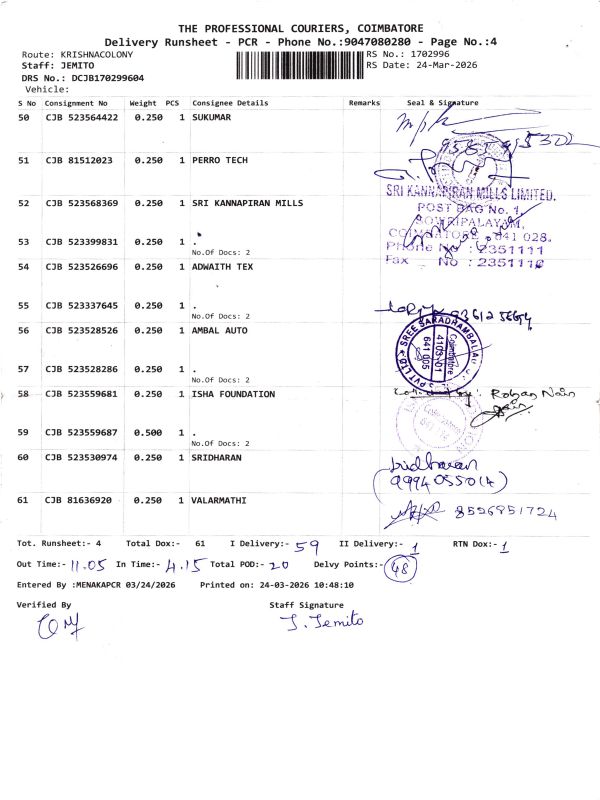 THE PROFESSIONAL COURIERS, COIMBATORE
Delivery Runsheet - PCR - Phone No.:9047080280 - Page No.:4
Route: KRISHNACOLONY RS No.: 1702996
Staff: JEMITO RS Date: 24-Mar-2026
DRS No.: DCJB170299604
Vehicle:
S No Consignment No Weight PCS Consignee Details Remarks Seal & Signature
50 CJB 523564422 0.250 1 SUKUMAR
51 CJB 81512023 0.250 1 PERRO TECH
SRI KANNAPIRAN MILLS LIMITED.
52 CJB 523568369 0.250 1 SRI KANNAPIRAN MILLS
POST BAG No. 1,
SOWRIPALAYAM,
COIMBATORE - 641 028.
53 CJB 523399831 0.250 1 .
Phone No : 2351111
No.Of Docs: 2
Fax No : 2351110
54 CJB 523526696 0.250 1 ADWAITH TEX
55 CJB 523337645 0.250 1 .
No.Of Docs: 2
56 CJB 523528526 0.250 1 AMBAL AUTO
SREE SARADHAMBAL AUTO
PVT LTD
Coimbatore
641 005
57 CJB 523528286 0.250 1 .
No.Of Docs: 2
58 CJB 523559681 0.250 1 ISHA FOUNDATION
by: Rohan Nair
59 CJB 523559687 0.500 1 .
No.Of Docs: 2
60 CJB 523530974 0.250 1 SRIDHARAN
Sridharan
61 CJB 81636920 0.250 1 VALARMATHI
8526951724
Tot. Runsheet:- 4 Total Dox:- 61 I Delivery:- 59 II Delivery:- 1 RTN Dox:- 1
Out Time:- 11.05 In Time:- 4.15 Total POD:- 20 Delvy Points:- 48
Entered By :MENAKAPCR 03/24/2026 Printed on: 24-03-2026 10:48:10
Verified By Staff Signature
J. Jemito